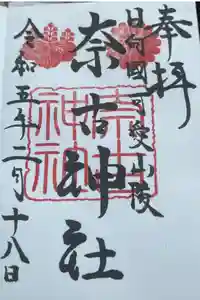 奉拝
日向國可愛山陵
奈古神社
奈古神社
令和五年二月十八日